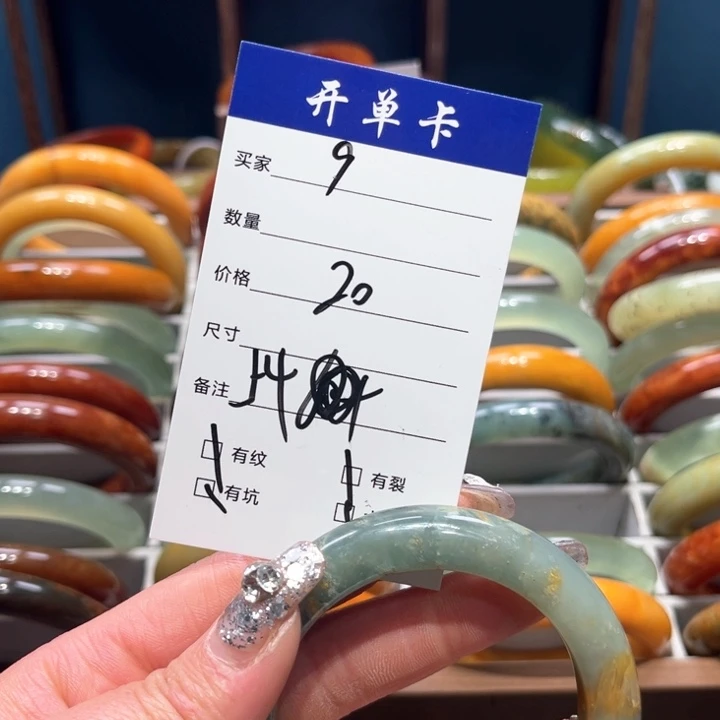 开单卡
买家 9
数量
价格 20
尺寸
备注
有纹 有裂
有坑